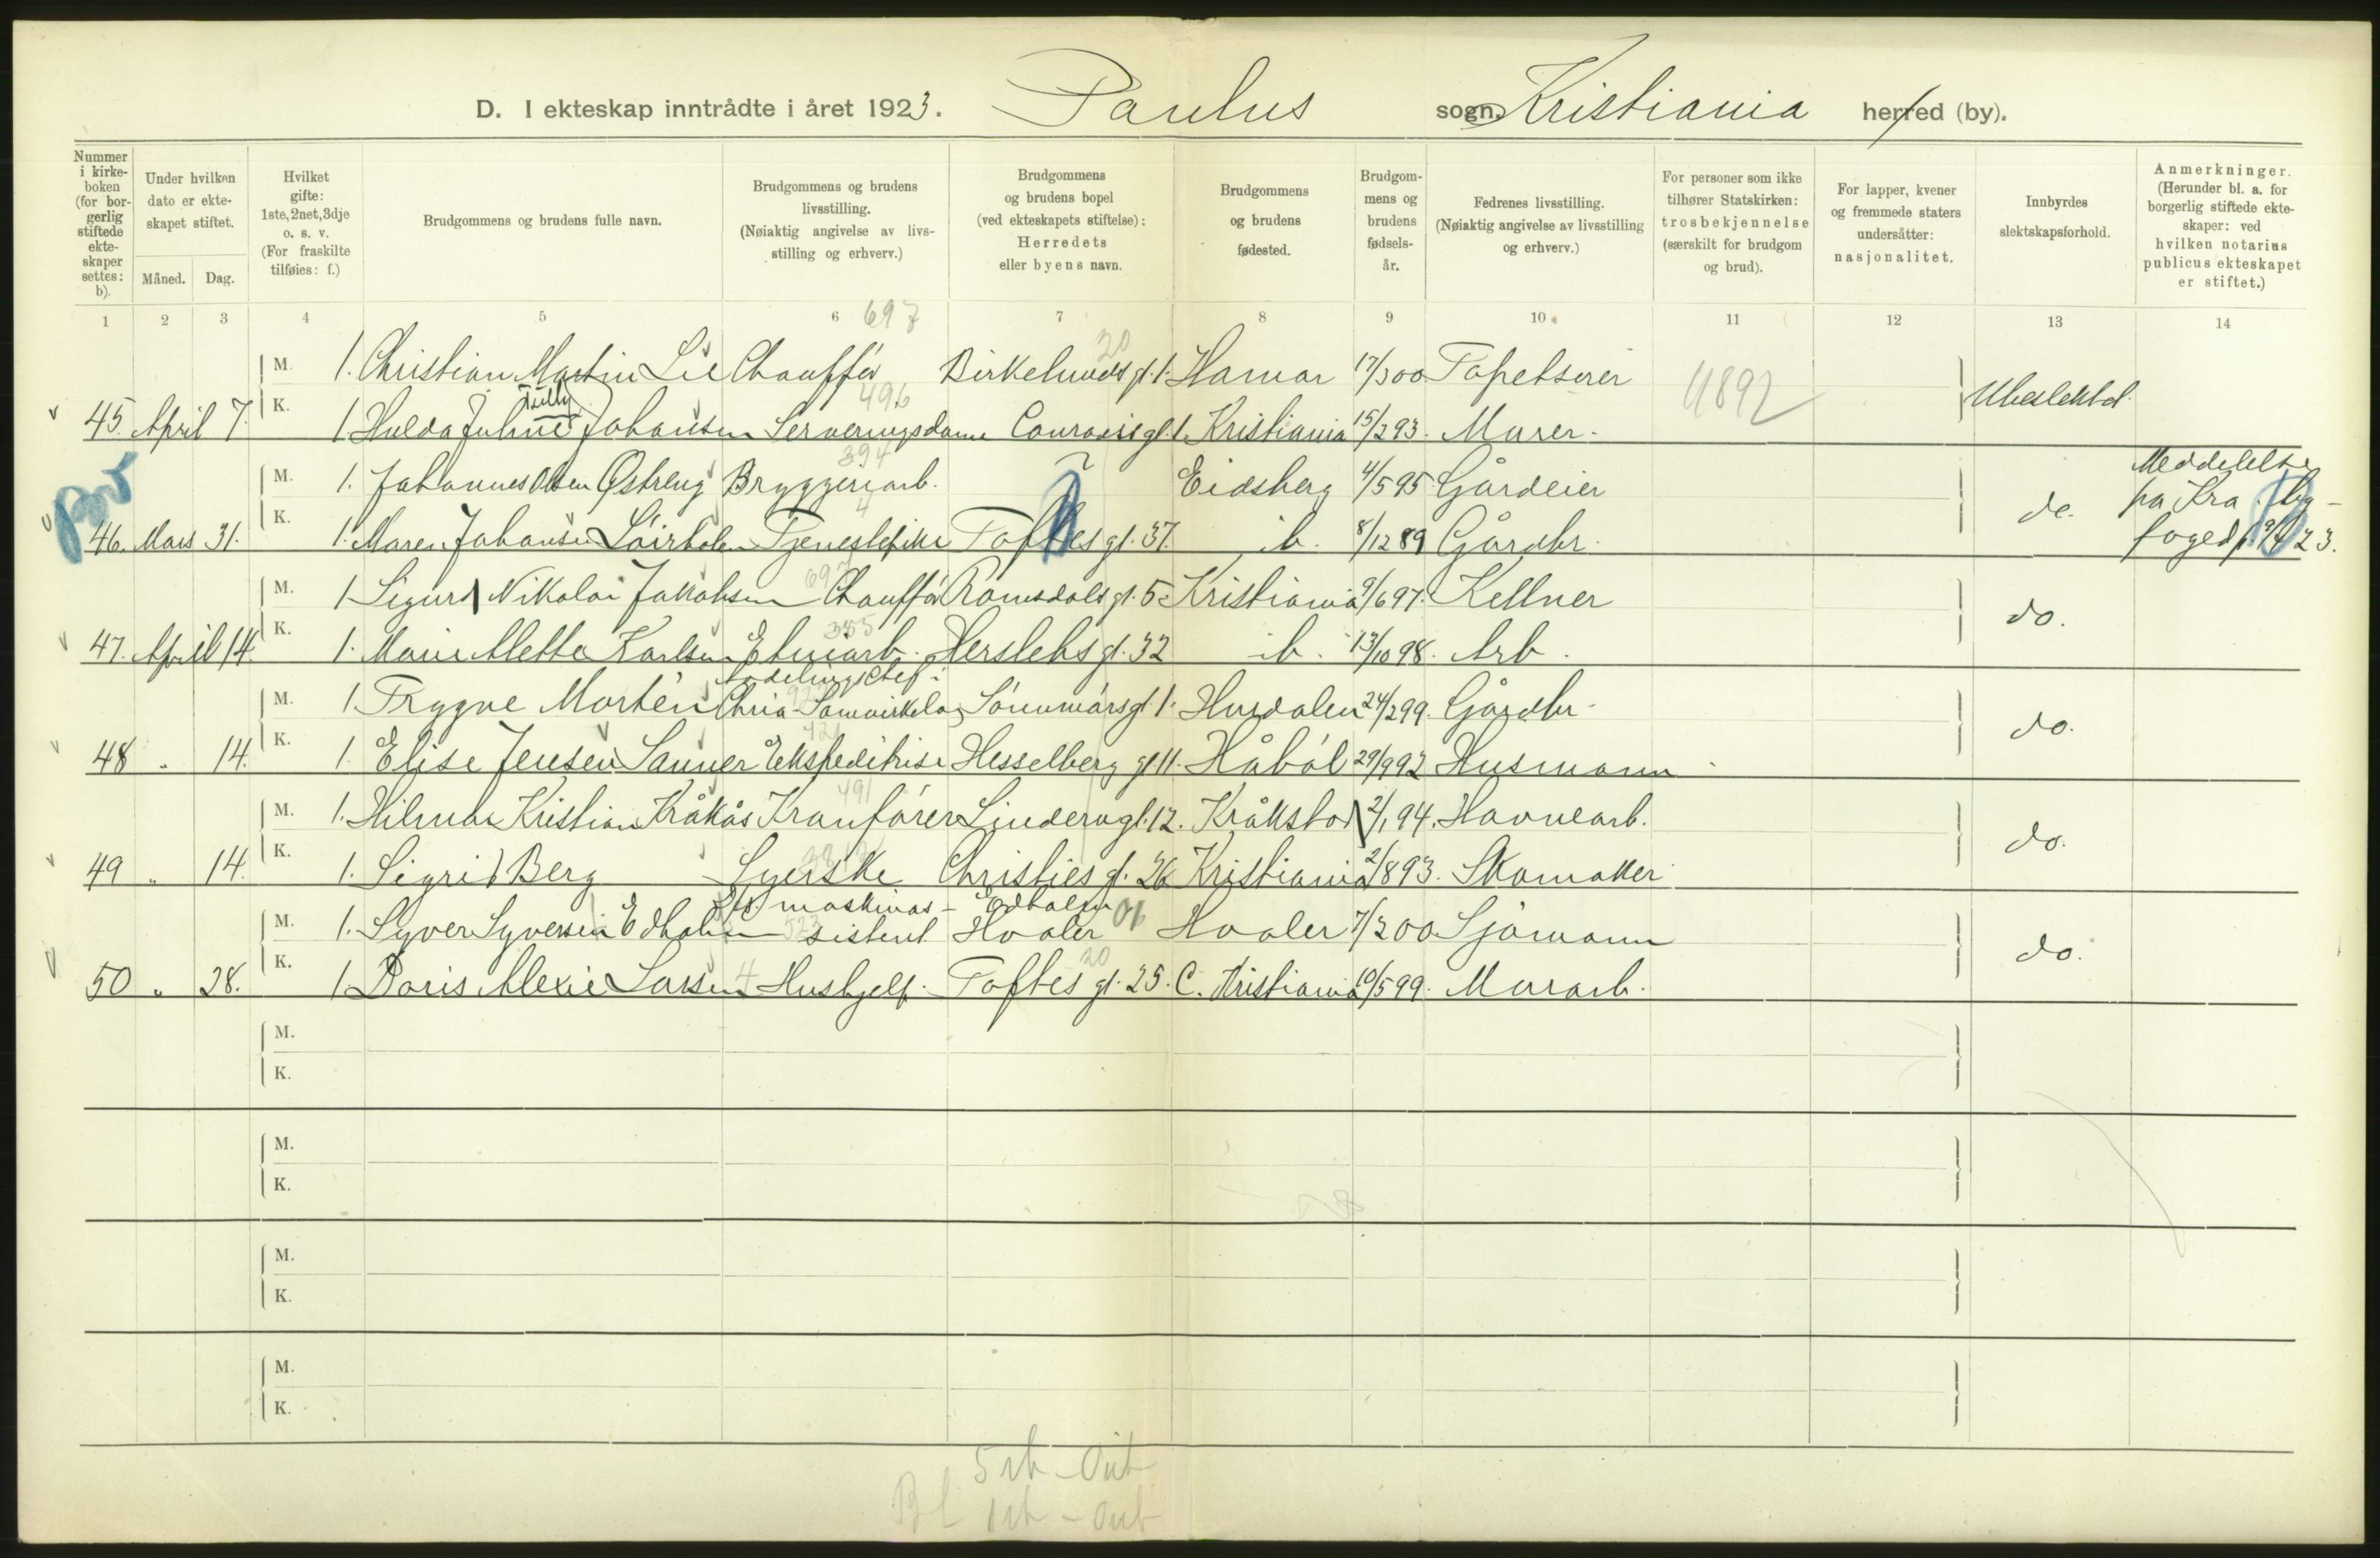 D. I ekteskap inntrådte i året 1923. Paulus sogn, Kristiania herred (by).
Nummer i kirkeboken (for borgerlig stiftede ekteskaper settes: b).
Under hvilken dato er ekteskapet stiftet.
Måned. Dag.
Hvilket gifte: 1ste, 2net, 3dje o. s. v. (For fraskilte tilføies: f.)
Brudgommens og brudens fulle navn.
Brudgommens og brudens livsstilling. (Nøiaktig angivelse av livsstilling og erhverv.)
Brudgommens og brudens bopel (ved ekteskapets stiftelse): Herredets eller byens navn.
Brudgommens og brudens fødested.
Brudgommens og brudens fødselsår.
Fedrenes livsstilling. (Nøiaktig angivelse av livsstilling og erhverv.)
For personer som ikke tilhører Statskirken: trosbekjennelse (særskilt for brudgom og brud).
For lapper, kvener og fremmede staters undersåtter: nasjonalitet.
Innbyrdes slektskapsforhold.
Anmerkninger. (Herunder bl. a. for borgerlig stiftede ekteskaper: ved hvilken notarius publicus ekteskapet er stiftet.)
1 2 3 4 5 6 7 8 9 10 11 12 13 14
697 20
M. 1. Christian Martin Lie Chauffør Birkelunds gt. 1. Hamar 17/3 00 Tapetserer 4892 Ubeslektet.
Tilly 496
45. April 7. K. 1. Hulda Juline Johansen Serveringsdame Conradis gt. 1. Kristiania 15/2 93. Murer.
394
M. 1. Johannes Olsen Østreng Bryggeriarb. Eidsberg 4/5 95 Gårdeier do. Meddelelse fra Kra. by-
4
46. Mars 31. K. 1. Maren Johansen Tjenestepike Toftes gt. 37. ib. 8/12 89 Gårdbr. foged 23.
697
M. 1. Sigurd Nikolai Jakobsen Chauffør Romsdals gt. 5 Kristiania 9/6 97. Kellner do.
355
47. April 14. K. 1. Marie Mette Karlsen Etuiarb. Herslebs gt. 32 ib. 13/10 98. Arb.
Avdelingschef i
M. 1. Trygve Mortén Chria Samvirkelag Sönnmörsgt. 1. Hurdalen 24/2 99. Gårdbr. do.
48 " 14. K. 1. Elise Jensen Sanner Ekspeditrise Hesselberg gt. 11. Håböl 29/9 92 Husmann
491
M. 1. Hilmar Kristian Kråkås Kranförer Linderngt. 12. Kråkstad 2/1 94. Havnearb. do.
49 " 14. K. 1. Sigrid Berg Syerske Christies gt. 26 Kristiania 2/8 93. Skomaker
maskinas- Edholm
M. 1. Syver Syversen Edholm 523 sistent Hvaler 01 Hvaler 7/2 00. Sjömann do.
20
50 " 28. K. 1. Doris Alexie Larsen 4 Hushjelp. Toftes gt. 25. C. Kristiania 10/5 99. Murarb.
M.
K.
M.
K.
M.
K.
M.
K.